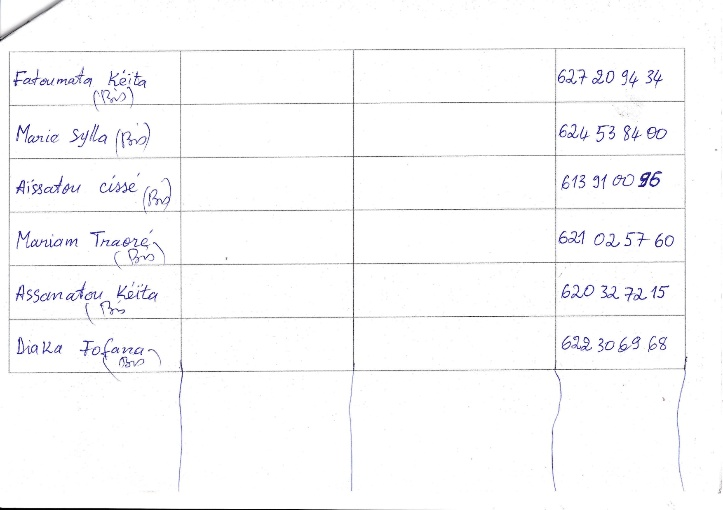 Fatoumata Kéita 627 20 94 34
(Bis)
Marie Sylla (Bis) 624 53 84 00
Aïssatou cissé (Bis) 613 91 00 96
Mariam Traoré 621 02 57 60
(Bis)
Assanatou Kéïta 620 32 72 15
(Bis
Diaka Fofana 622 30 69 68
(Bis)